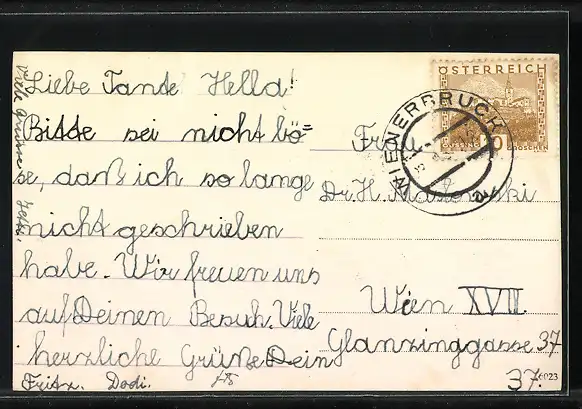 Liebe Tande Hella!
Bitte sei nicht bö=
se, daß ich so lange
nicht geschrieben
habe. Wir freuen uns
auf Deinen Besuh. Viele
herzliche Grüße Dein
Fritz. Dodi.
Viele Grüsse
Frau
Dr. H.
Wien XVII.
Glanzinggasse 37
37.
6023
ÖSTERREICH
GROSCHEN
WIENERBRUCK